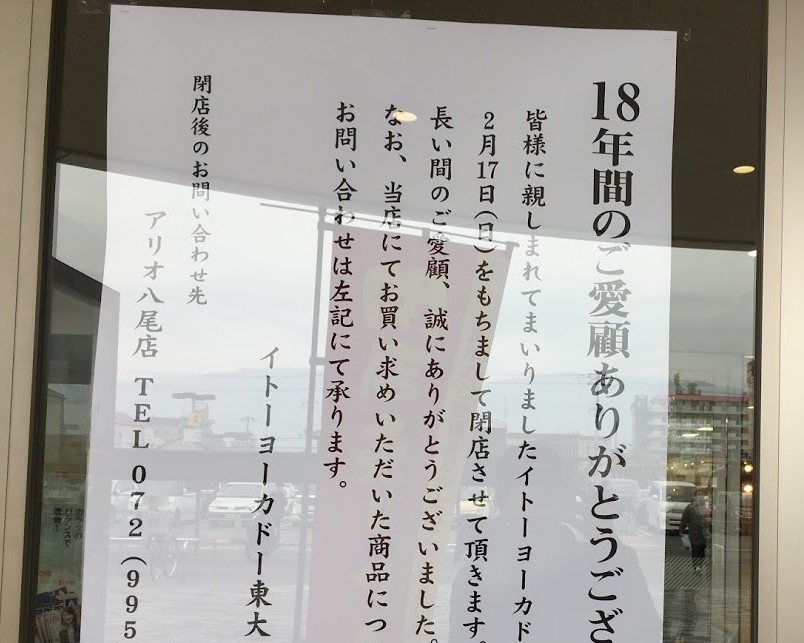 18年間のご愛顧ありがとうござ
皆様に親しまれてまいりましたイトーヨーカド
2月17日(日)をもちまして閉店させて頂きます。
長い間のご愛顧、誠にありがとうございました。
なお、当店にてお買い求めいただいた商品につ
お問い合わせは左記にて承ります。
イトーヨーカドー東大
閉店後のお問い合わせ先
アリオ八尾店 TEL 072(995
カラダの
バランスで